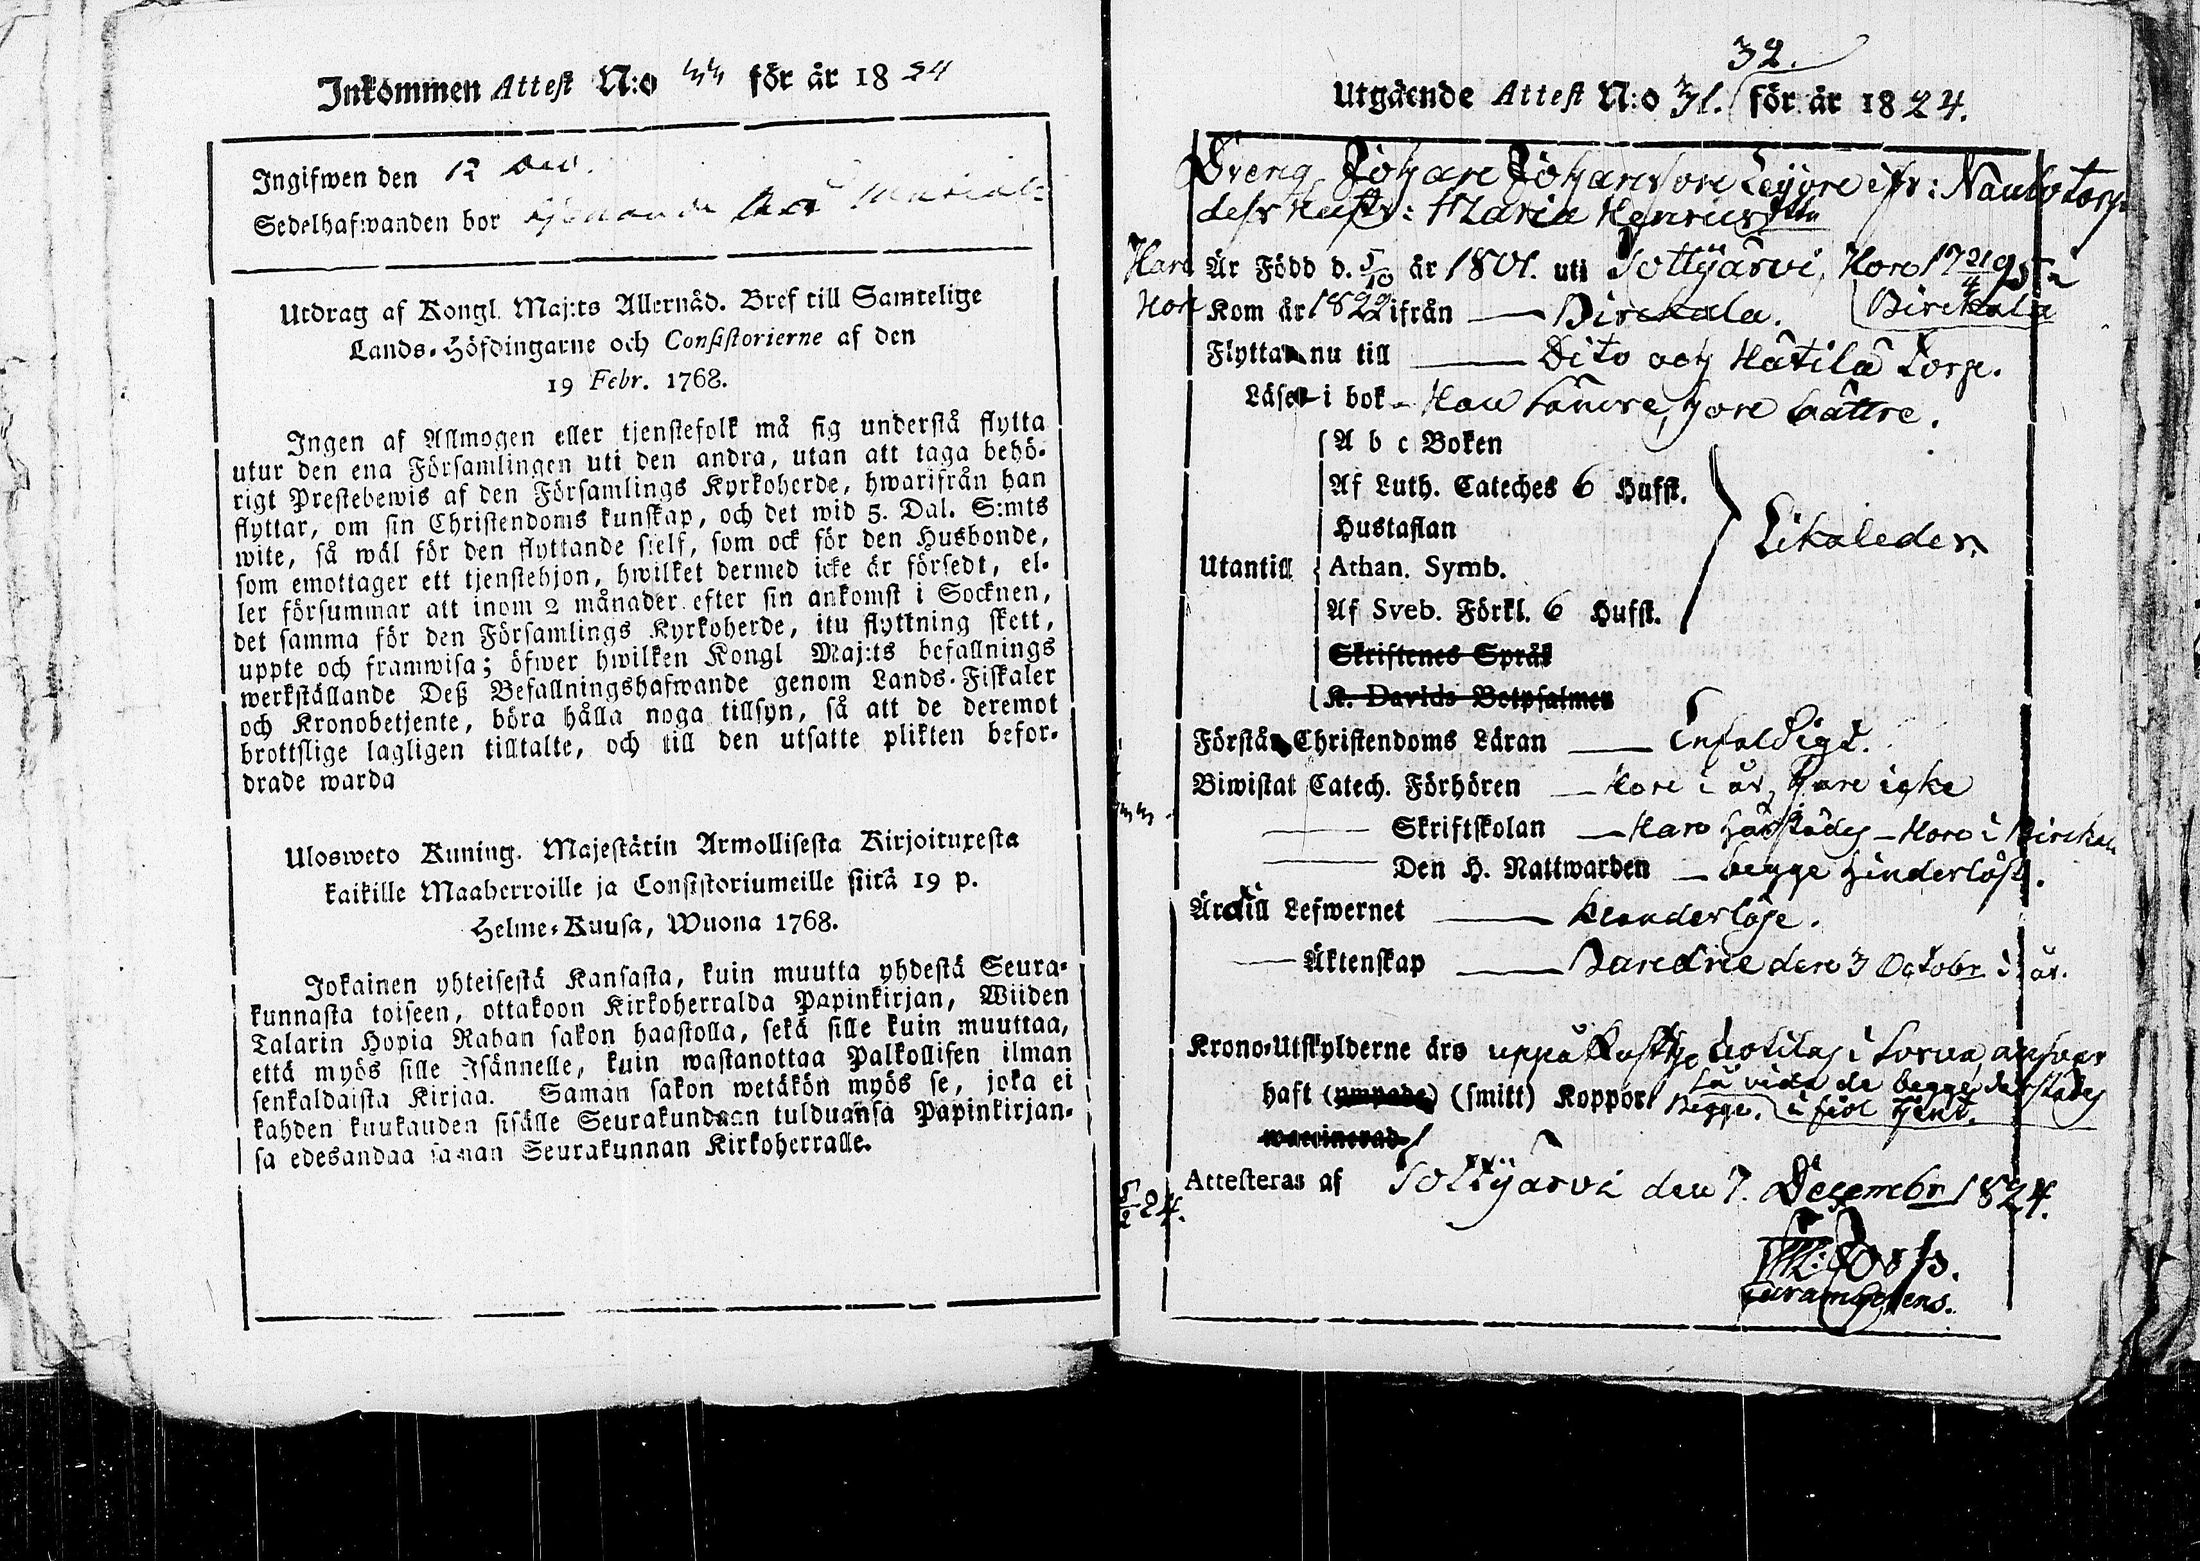 Inkommen Attest N:o för år 1824
Ingifwen den 12 Dec.
Sedelhafwanden bor
Utdrag af Kongl. Maj:ts Allernåd. Bref till Samtelige
Lands-Höfdingarne och Consistorierne af den
19 Febr. 1768.
Ingen af Allmogen eller tjenstefolk må sig understå flytta
utur den ena Församlingen uti den andra, utan att taga behö-
rigt Prestebewis af den Församlings Kyrkoherde, hwarifrån han
flyttar, om sin Christendoms kunskap, och det wid 5. Dal. S:mts
wite, så wäl för den flyttande sielf, som ock för den Husbonde,
som emottager ett tjenstehjon, hwilket dermed icke är försedt, el-
ler försummar att inom 2 månader efter sin ankomst i Socknen,
det samma för den Församlings Kyrkoherde, itu flyttning skett,
uppte och framwisa; öfwer hwilken Kongl Maj:ts befallnings
werkställande Deß Befallningshafwande genom Lands-Fiskaler
och Kronobetjente, böra hålla noga tillsyn, så att de deremot
brottslige lagligen tilltalte, och till den utsatte plikten befor-
drade warda
Ulosweto Kuning. Majestätin Armollisesta Kirjoituxesta
kaikille Maaherroille ja Consistoriumeille siitä 19 p.
Helme-Kuusa, Wuona 1768.
Jokainen yhteisestä Kansasta, kuin muutta yhdestä Seura-
kunnasta toiseen, ottakoon Kirkoherralda Papinkirjan, Wiiden
Talarin Hopia Rahan sakon haastolla, sekä sille kuin muuttaa,
että myös sille Isännelle, kuin wastanottaa Palkollisen ilman
senkaldaista Kirjaa. Saman sakon wetäkön myös se, joka ei
kahden kuukauden sisälle Seurakundaan tulduansa Papinkirjan-
sa edesandaa saman Seurakunnan Kirkoherralle.
32.
Utgående Attest N:o 31. för år 1824.
Dreng Johan Johansson ifr: Naubo torp
dess Hustr: Maria Henricsdttr
Han Är Född d. 5/10 år 1801. uti Tottijärvi, Hon 17 21/4 95 i
Hon Kom år 1822 ifrån — Birckala. Birckala
Flyttar nu till — Dito och Hatila Torp.
Läser i bok - Han sämre, hon bättre.
A b c Boken
Af Luth. Cateches 6 Hufst.
Hustaflan
Likaledes
Utantill Athan. Symb.
Af Sveb. Förkl. 6 Hufst.
Skriftenes Språk
K. Davids Botpsalmer
Förstår Christendoms Läran — Enfaldigt.
Biwistat Catech. Förhören — Hon i år, han icke
— Skriftskolan — Han härstädes – Hon i Birckala
— Den H. Nattwarden — begge hinderlöse.
Är till Lefwernet — klanderlöse.
— Äktenskap — den 3 Octobr i år.
Krono-Utskylderne äro uppå i ansvar
haft (ympade) (smitt) Koppor Begge. så vida de begge derstädes
i fjol tjent.
waccinerad
Attesteras af Tottijärvi den 7. Decembr 1824.